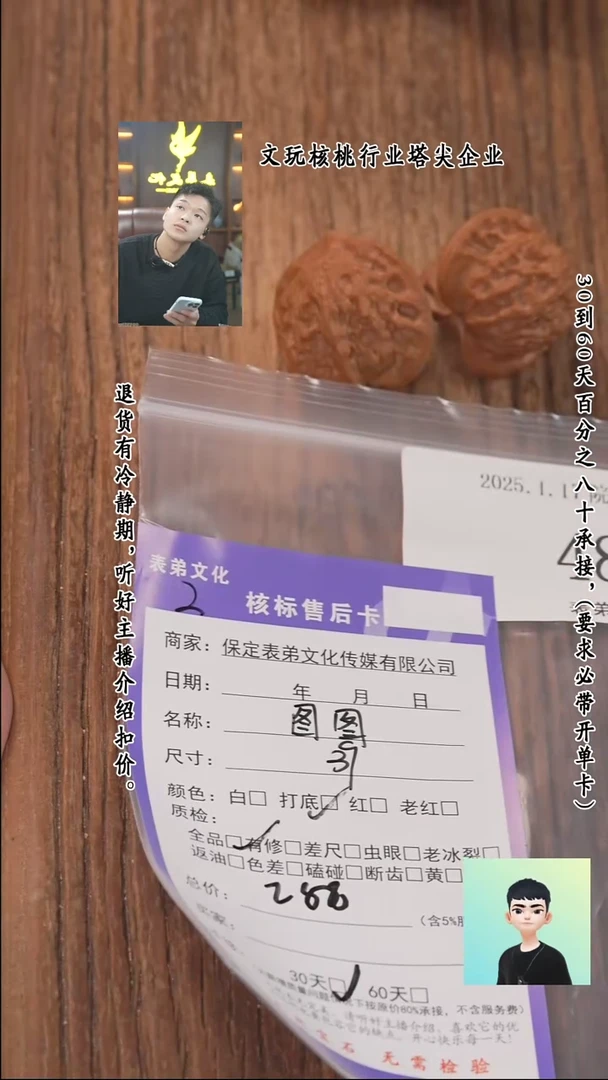 文玩核桃行业塔尖企业
30到60天百分之八十承接，(要求必带开单卡)
退货有冷静期，听好主播介绍扣价。
2025.1.17
48
表弟文化
核标售后卡
商家：保定表弟文化传媒有限公司
日期： 年 月 日
名称： 图图
尺寸： 39
颜色：白□ 打底□ 红□ 老红□
质检：
全品□有修□差尺□虫眼□老冰裂□
返油□色差□磕碰□断齿□黄□
总价： 288
(含5%
30天□ 60天□
下按原价80%承接，不含服务费)
请听好主播介绍，喜欢它的优
的缺点，开心快乐每一天！
无需检验